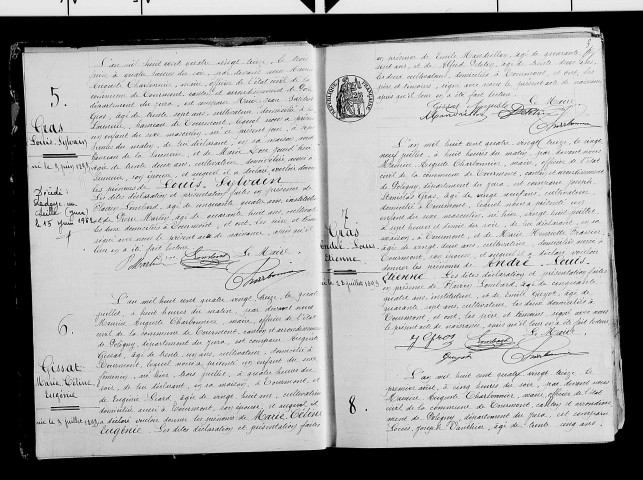 5.
Gras
Louis, Sylvain
né le 3 juin 1893
Décédé
le 15 juin 1962
L'an mil huit cent quatre vingt treize, le trois
juin à quatre heures du soir, par devant nous
Auguste Charbonnier, maire, officier de l'état civil de la
commune de Tourmont, canton et arrondissement de Poligny,
département du Jura, est comparu
Gras, âgé de trente sept ans, cultivateur, domicilié à
Tourmont, lequel nous a présenté
un enfant du sexe masculin, né ce présent jour, à
heures du matin, de lui déclarant, en sa maison
âgée de trente deux ans, cultivatrice, domiciliée avec lui à
son épouse, et auquel il a déclaré vouloir donner
les prénoms de Louis, Sylvain
Les dites déclaration et présentation faites en présence de
Lombard, âgé de cinquante quatre ans, instituteur
et de Pierre Martin, âgé de quarante huit ans, cultivateur
les deux domiciliés à Tourmont, et ont, les père et témoins
signé avec nous le présent acte de naissance, après qu'il
en a été fait lecture.
Lombard Le Maire
Charbonnier
6.
Gissat
Marie, Céline,
Eugénie
née le 3 juillet 1893
L'an mil huit cent quatre vingt treize, le quatre
juillet, à huit heures du matin, par devant nous
Mamie Auguste Charbonnier, maire, officier de l'état
civil de la commune de Tourmont, canton et arrondissement
de Poligny, département du Jura, est comparu August
Gissat, âgé de trente un ans, cultivateur, domicilié à
Tourmont, lequel nous a présenté un enfant du sexe
féminin, né hier, trois juillet, à quatre heures du
soir, de lui déclarant, en sa maison, à Tourmont, et
de Eugénie Girard, âgée de vingt huit ans, cultivatrice
domiciliée avec lui à Tourmont, son épouse, et auquel il
a déclaré vouloir donner les prénoms de Marie, Céline
Eugénie. Les dites déclaration et présentation faites
RÉPUBLIQUE FRANÇAISE
en présence de Emile Mandrillon, âgé de quarante
sept ans, et de Alfred âgé de trente deux ans,
les deux cultivateurs, domiciliés à Tourmont, et ont, les
père et témoins, signé avec nous le présent acte de naissance
après qu'il leur en a été fait lecture.
Gissat Auguste Le Maire
Mandrillon
Charbonnier
7
Gras
André, Louis
Etienne
né le 28 juillet 1893
L'an mil huit cent quatre vingt treize, le vingt
neuf juillet, à huit heures du matin, par devant nous
Mamie Auguste Charbonnier, maire, officier de l'état
civil de la commune de Tourmont, canton et arrondissement
de Poligny, département du Jura, est comparu Joseph
Stanislas Gras, âgé de vingt quatre ans, cultivateur,
domicilié à Tourmont, lequel nous a présenté un
enfant du sexe masculin, né hier, vingt huit juillet,
à sept heures et demie du soir, de lui déclarant, en sa
maison, à Tourmont, et de Marie Henriette
âgée de vingt deux ans, cultivatrice, domiciliée avec lui à
Tourmont, son épouse, et auquel il a déclaré vouloir
donner les prénoms de André, Louis,
Etienne. Les dites déclaration et présentation faites
en présence de Lombard, âgé de cinquante
quatre ans, instituteur, et de Emile Guyot, âgé de
ans, cultivateur, les deux domiciliés à
Tourmont, et ont, les père et témoins, signé avec nous
le présent acte de naissance, après qu'il leur en a été fait lecture
J Gras Lombard Le Maire
Guyot Charbonnier
8.
L'an mil huit cent quatre vingt treize, le
premier août, à cinq heures du soir, par devant nous
Mamie Auguste Charbonnier, maire, officier de l'état
civil de la commune de Tourmont, canton et arrondisse-
ment de Poligny, département du Jura, est comparu
Louis, Joseph Vauthier, âgé de trente cinq ans,